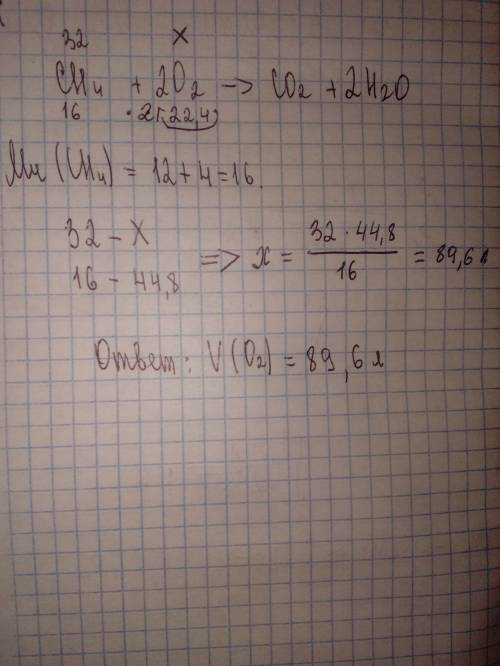 32 x
CH4 + 2O2 -> CO2 + 2H2O
16 · 2(22,4)
Mr (CH4) = 12+4=16.
32 - x
16 - 44,8
=> x = 32·44,8 / 16 = 89,6 л
Ответ: V(O2) = 89,6 л